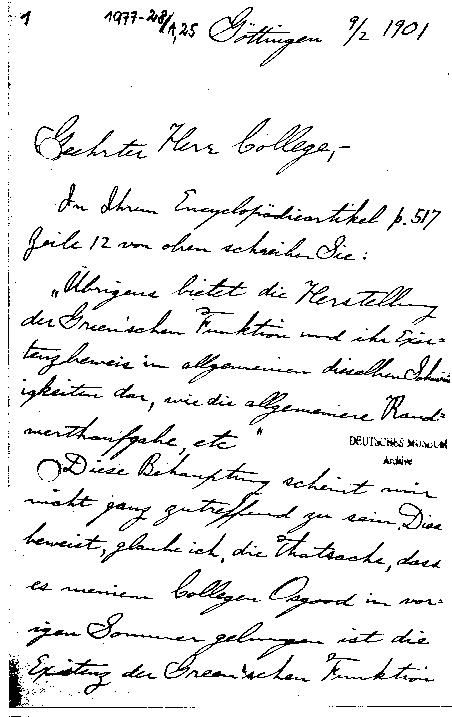 1
1977-28/A,25
Göttingen 9/2 1901
Geehrter Herr College,-
In Ihrem Encyclopädieartikel p. 517
Zeile 12 von oben schreiben Sie:
"Übrigens bietet die Herstellung
der Green'schen Funktion und ihr Exis-
tenzbeweis im allgemeinen dieselben Schwier-
igkeiten dar, wie die allgemeinere Rand-
werthaufgabe, etc"
DEUTSCHES MUSEUM
Archive
Diese Behauptung scheint mir
nicht ganz zutreffend zu sein. Dies
beweist, glaube ich, die Thatsache, dass
es meinem Collegen Osgood im vor-
igen Sommer gelungen ist die
Existenz der Green'schen Funktion